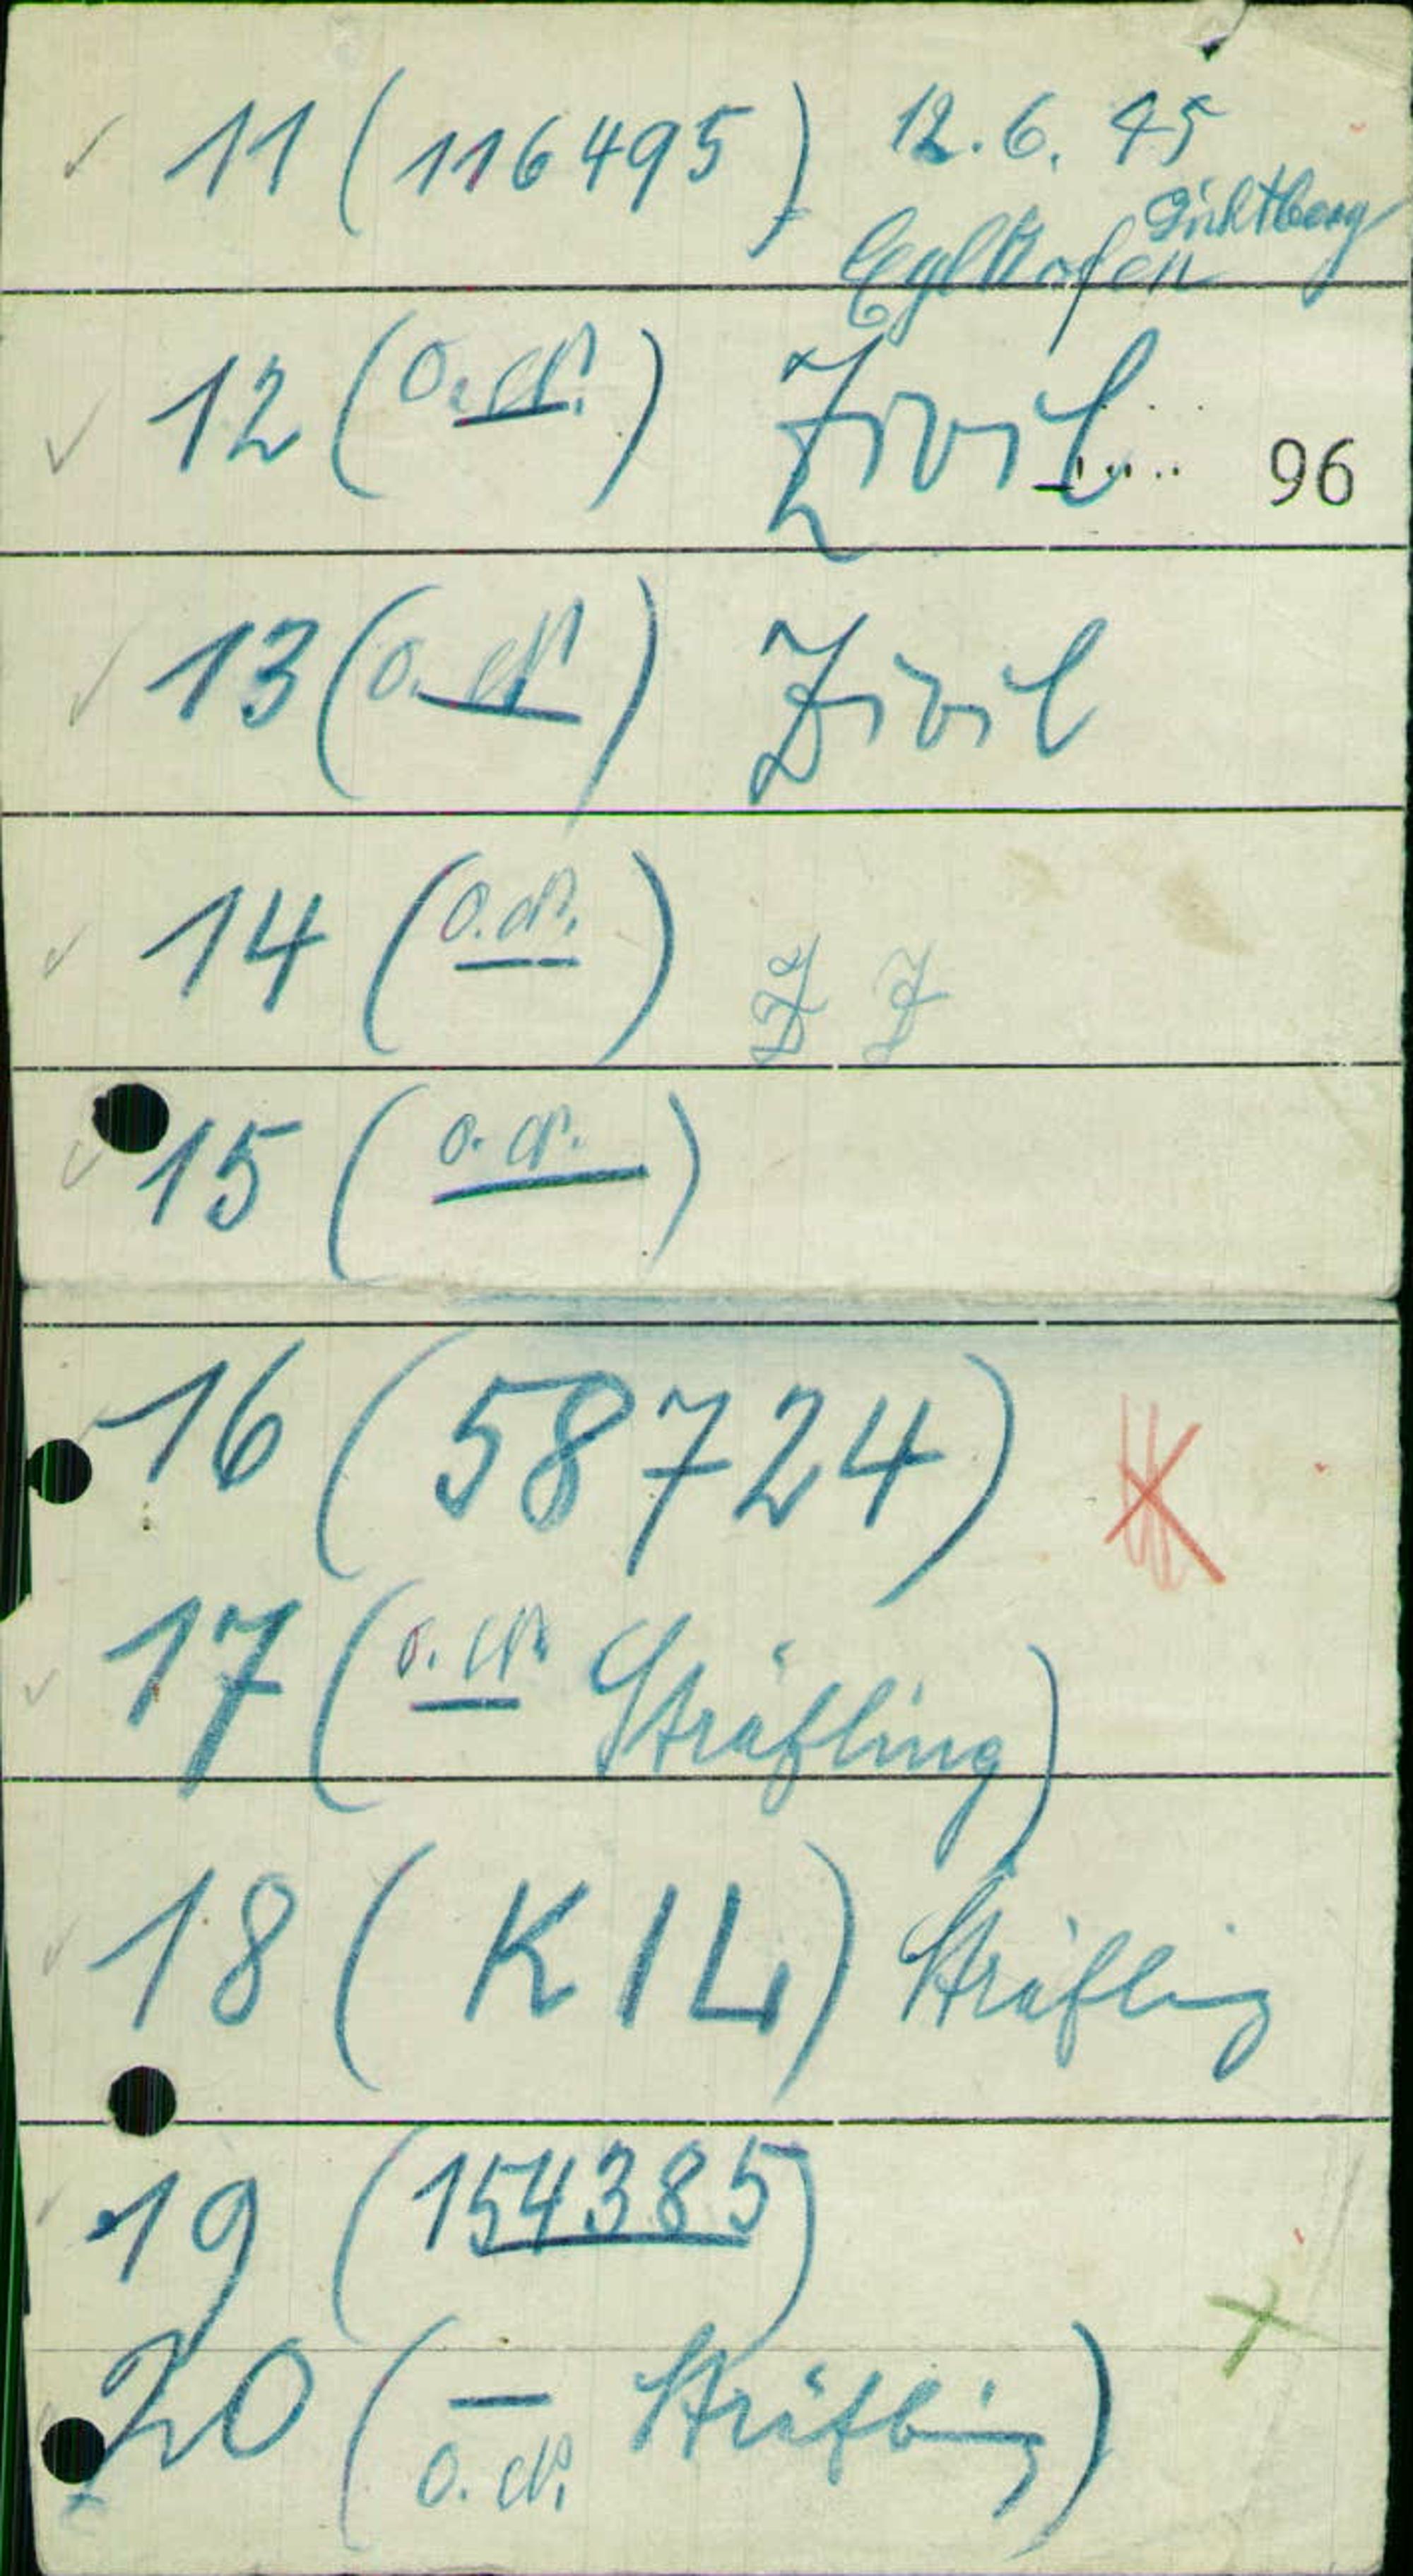 11 (116495) 12.6.45
Eglkofen
12 (o. N.) Zivil
96
13 (o. N.) Zivil
14 (o. N.) Z Z
15 (o. N.)
16 (58724)
17 (o. N. Sträfling)
18 (K I L) Sträfling
19 (154385)
20 (— Sträfling)
o. N.